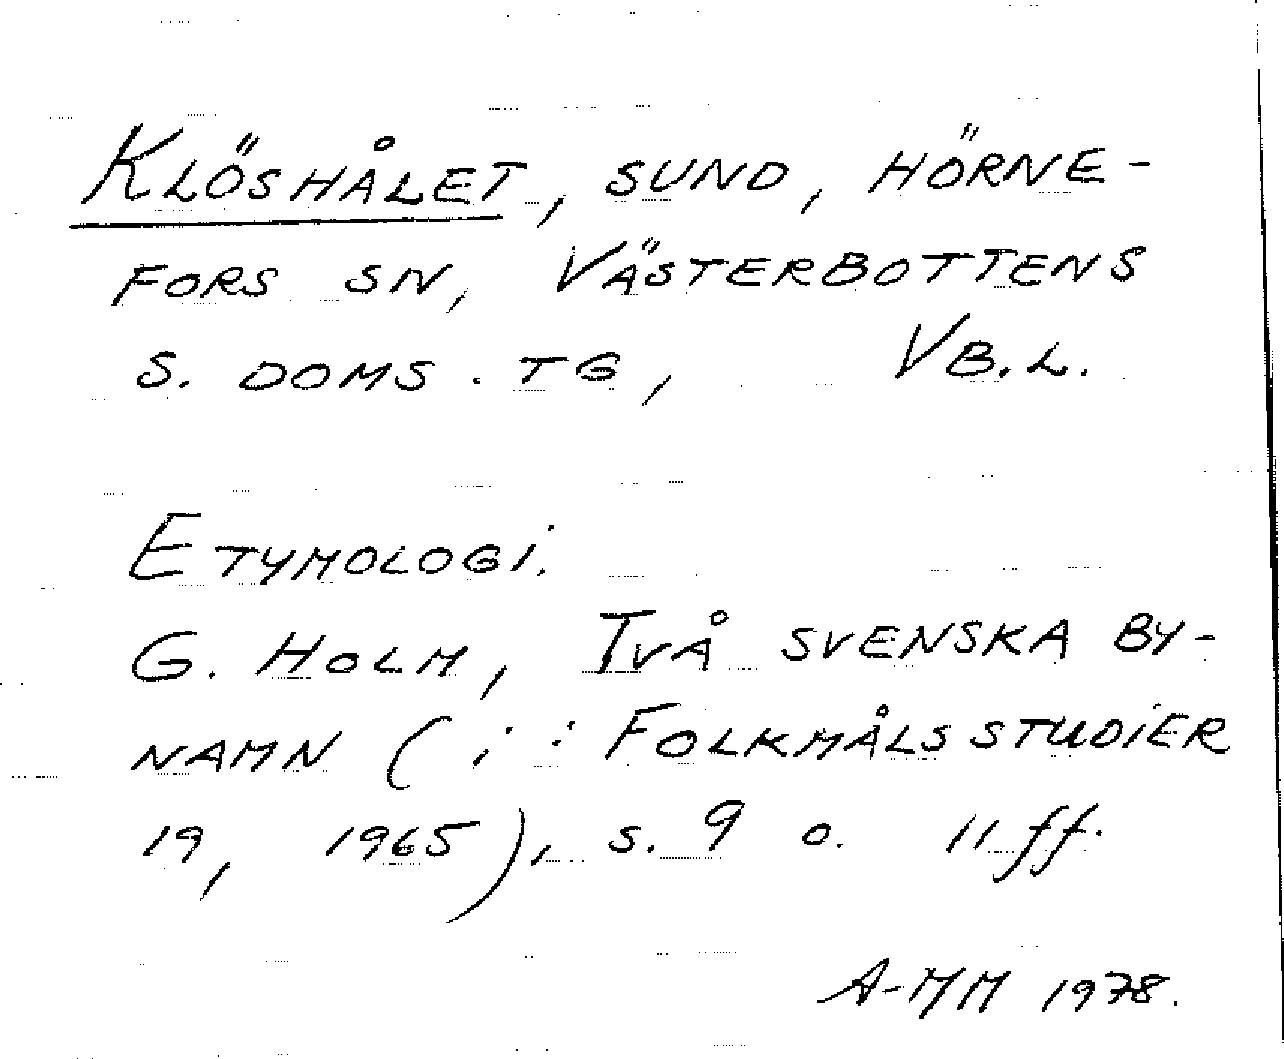 KLÖSHÅLET, SUND, HÖRNE-
FORS SN, VÄSTERBOTTENS
S. DOMS. TG, VB.L.
ETYMOLOGI.
G. HOLM, TVÅ SVENSKA BY-
NAMN (i: FOLKMÅLSSTUDIER
19, 1965), S. 9 o. 11 ff.
A-MM 1978.